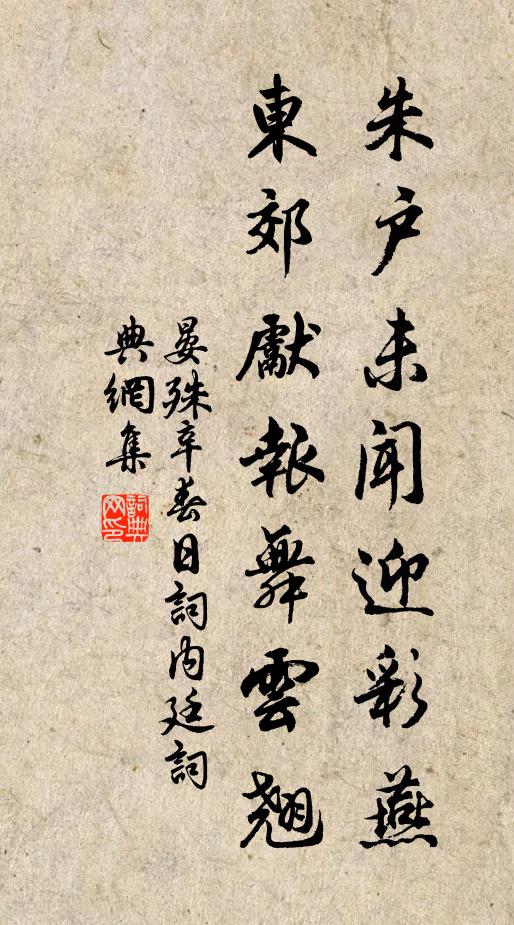 朱户未聞迎彩燕
東郊獻報舞雲翹
晏殊辛春日詞内廷詞
典網集
詞典
网印